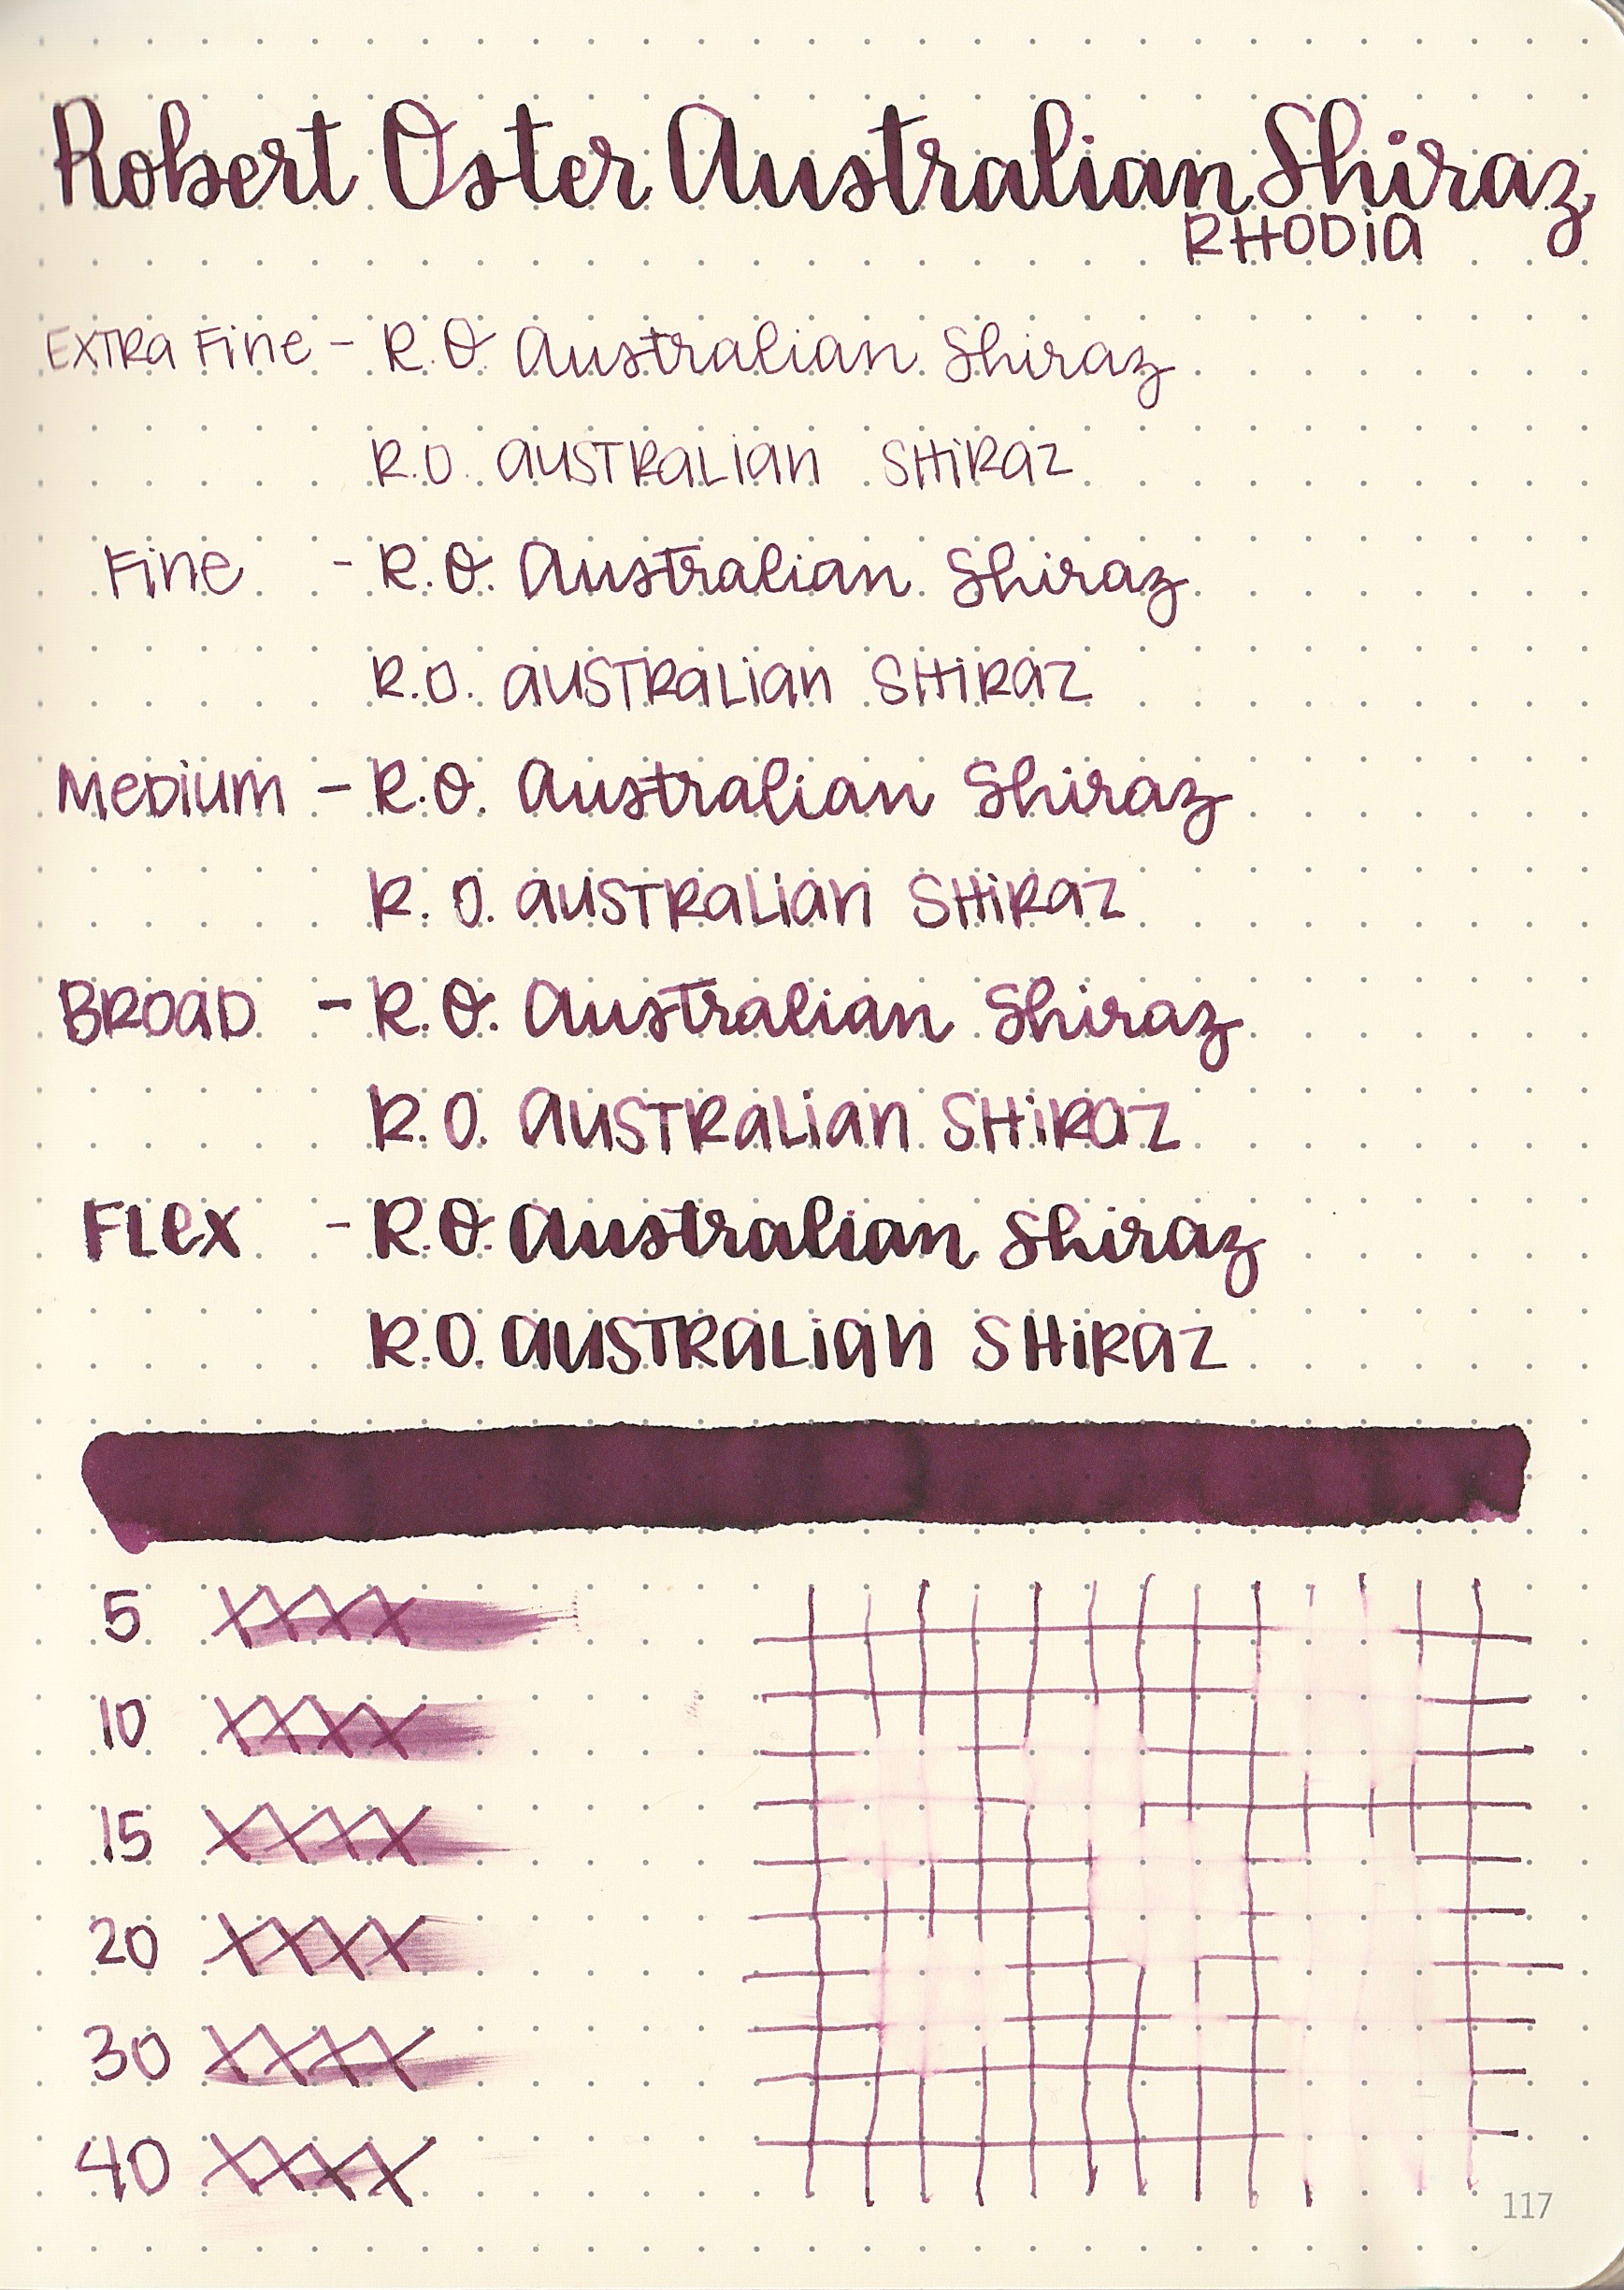 Robert Oster Australian Shiraz
RHODiA
EXTRa Fine - R.O. Australian Shiraz
R.O. aUSTRaLian SHiRaZ
Fine - R.O. Australian Shiraz
R.O. aUSTRaLian SHiRaZ
MeDiUm - R.O. Australian Shiraz
R.O. aUSTRaLian SHiRaZ
BROaD - R.O. Australian Shiraz
R.O. aUSTRaLian SHiRaZ
FLex - R.O. Australian Shiraz
R.O. aUSTRaLian SHiRaZ
5 XXXX
10 XXXX
15 XXXX
20 XXXX
30 XXXX
40 XXXX
117